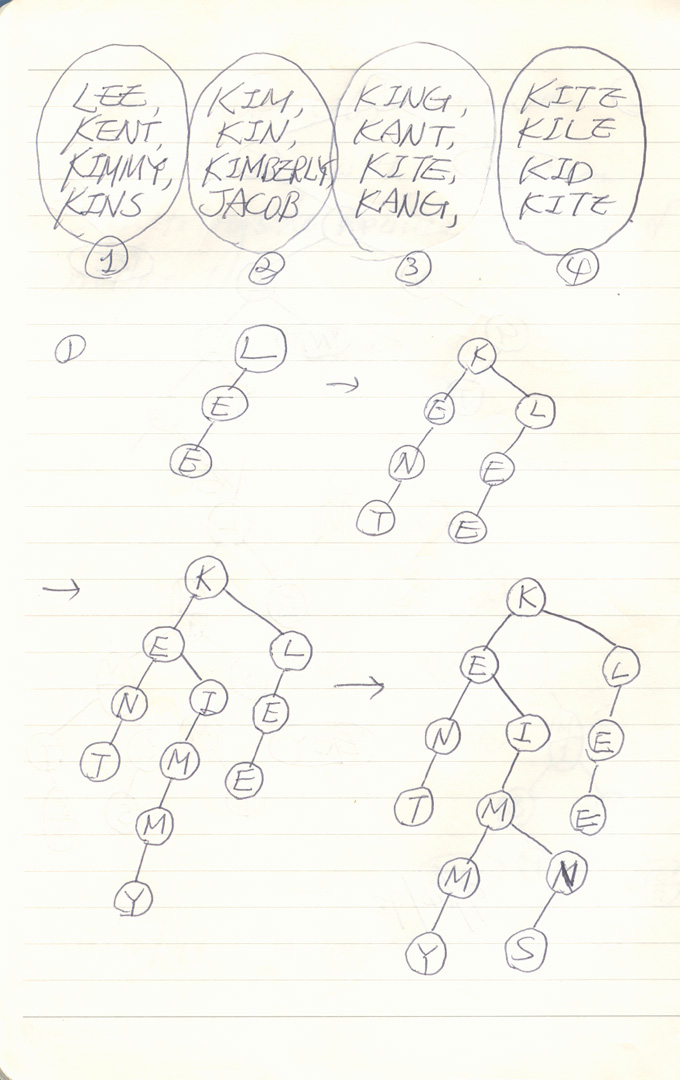 LEE, KIM, KING, KITE
KENT, KIN, KANT, KILE
KIMMY, KIMBERLY, KITE, KID
KINS JACOB KANG, KITE
1 2 3 4
1
L → K
E E L
E N E
T E
→ K → K
E L E L
N I E N I E
T M E T M E
M M N
Y Y S